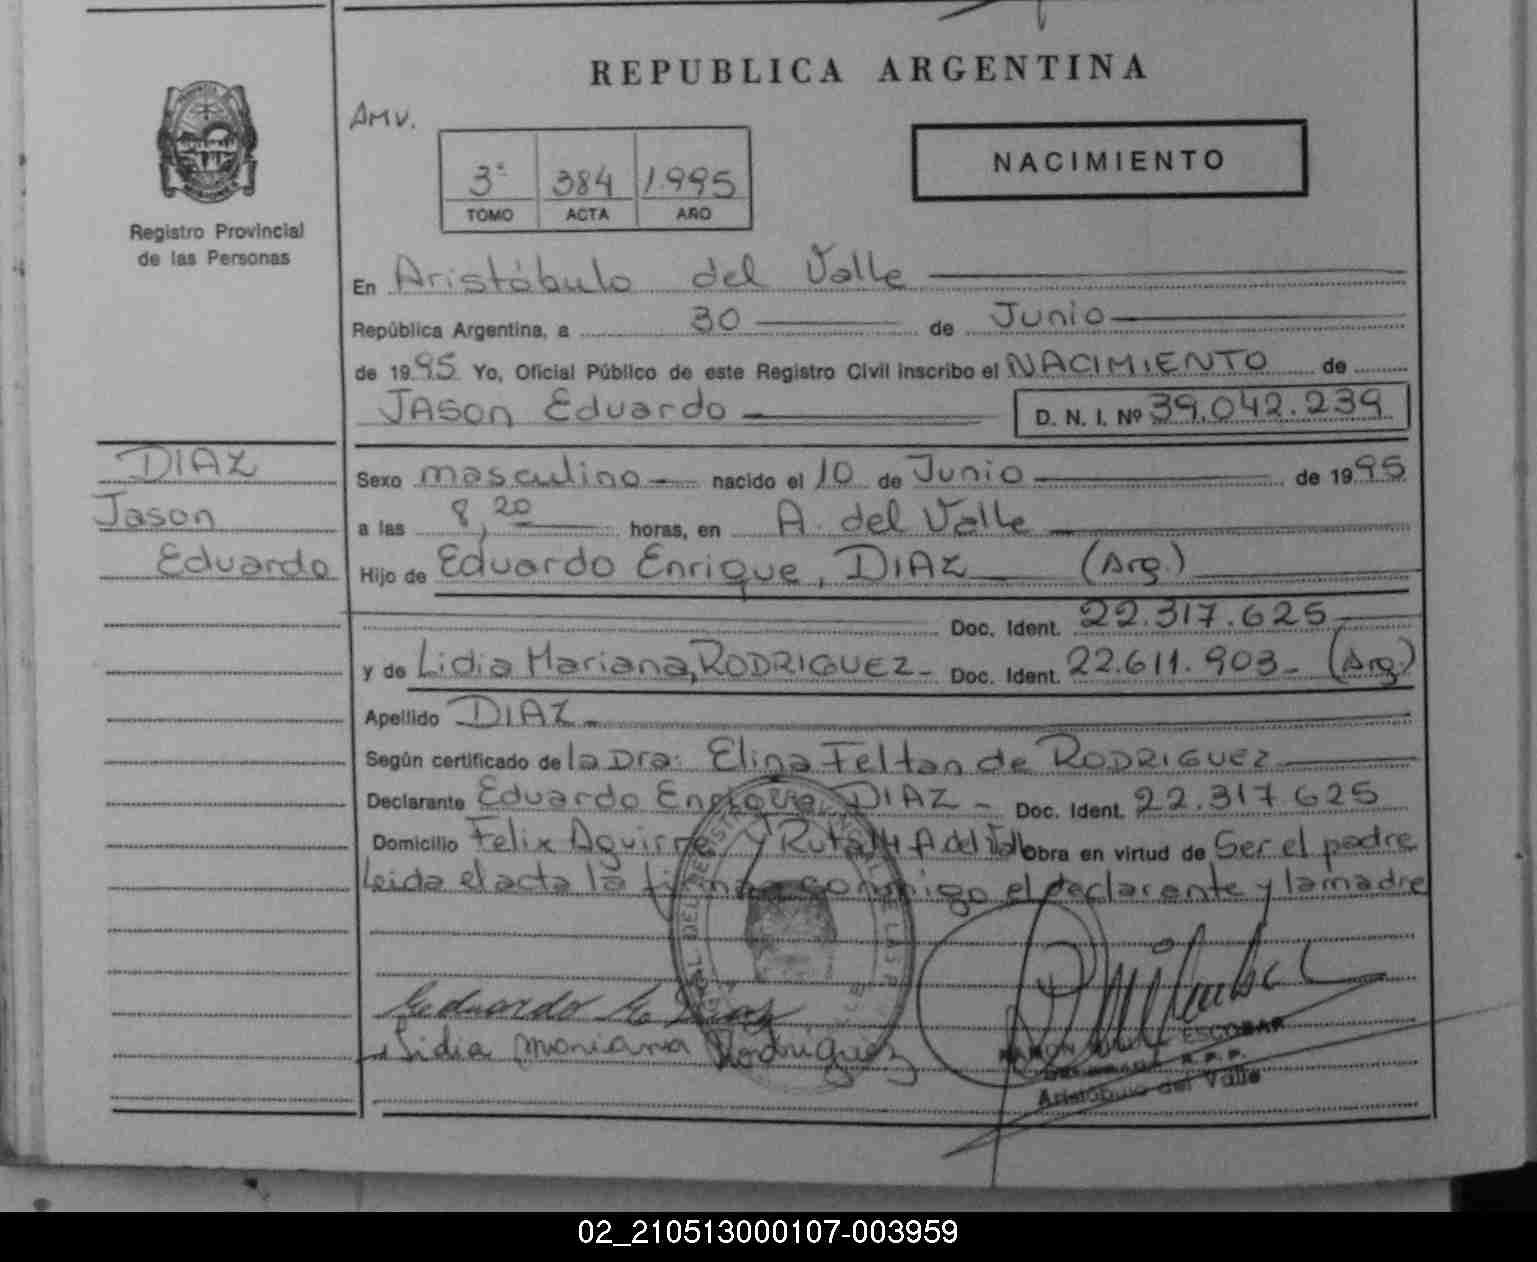 REPUBLICA ARGENTINA
AMV.
3ª 384 1.995
TOMO ACTA AÑO
NACIMIENTO
Registro Provincial
de las Personas
En Aristóbulo del Valle
República Argentina, a 30 de Junio
de 1995 Yo, Oficial Público de este Registro Civil inscribo el NACIMIENTO de
JASON Eduardo D. N. I. Nº 39.042.239
DIAZ
Jason
Eduardo
Sexo masculino nacido el 10 de Junio de 1995
a las 8,20 horas, en A. del Valle
Hijo de Eduardo Enrique, DIAZ (Arg.)
Doc. Ident. 22.317.625
y de Lidia Mariana, RODRIGUEZ- Doc. Ident. 22.611.903- (Arg.)
Apellido DIAZ
Según certificado de la Dra: Elina Feltan de RODRIGUEZ
Declarante Eduardo Enrique, DIAZ - Doc. Ident. 22.317.625
Domicilio Felix Aguirre y Ruta 14 A del Valle obra en virtud de Ser el padre
Leida el acta la firman conmigo el declarante y la madre
Eduardo E. Diaz
Lidia Mariana Rodriguez
RAMON ESCOBAR
R.P.P.
Aristóbulo del Valle
02_210513000107-003959